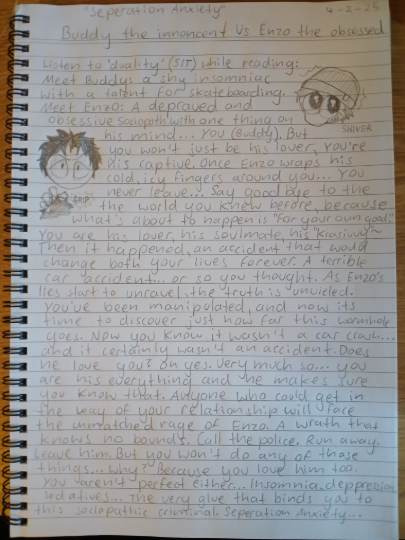 "Seperation Anxiety"
4-2-25
Buddy the innoncent Vs Enzo the obsessed
Listen to 'duality' (SIT) while reading:
Meet Buddy: a shy insomniac
with a talent for skateboarding.
Meet Enzo: A depraved and
obsessive sociopath with one thing on
his mind... You (Buddy). But
SHIVER
you won't just be his lover, you're
his captive. Once Enzo wraps his
cold, icy fingers around you... You
never leave... Say good bye to the
GRIP
the world you knew before, because
what's about to happen is "For your own good."
You are his lover, his soulmate, his "Krasivuy"~
Then it happened, an accident that would
change both your lives forever. A terrible
car accident... or so you thought. As Enzo's
lies start to unravel, the truth is unvieled.
You've been manipulated, and now its
time to discover just how far this wormhole
goes. Now you know it wasn't a car crash...
and it certainly wasn't an accident. Does
he love you? Oh yes. Very much so... you
are his everything and he makes sure
you know that. Anyone who could get in
the way of your relationship will face
the unmatched rage of Enzo. A wrath that
knows no bounds. Call the police. Run away.
Leave him. But you won't do any of those
things... Why? Because you love him too.
You aren't perfect either... Insomnia, depression
sedatives... The very glue that binds you to
this sociopathic criminal. Seperation Anxiety...